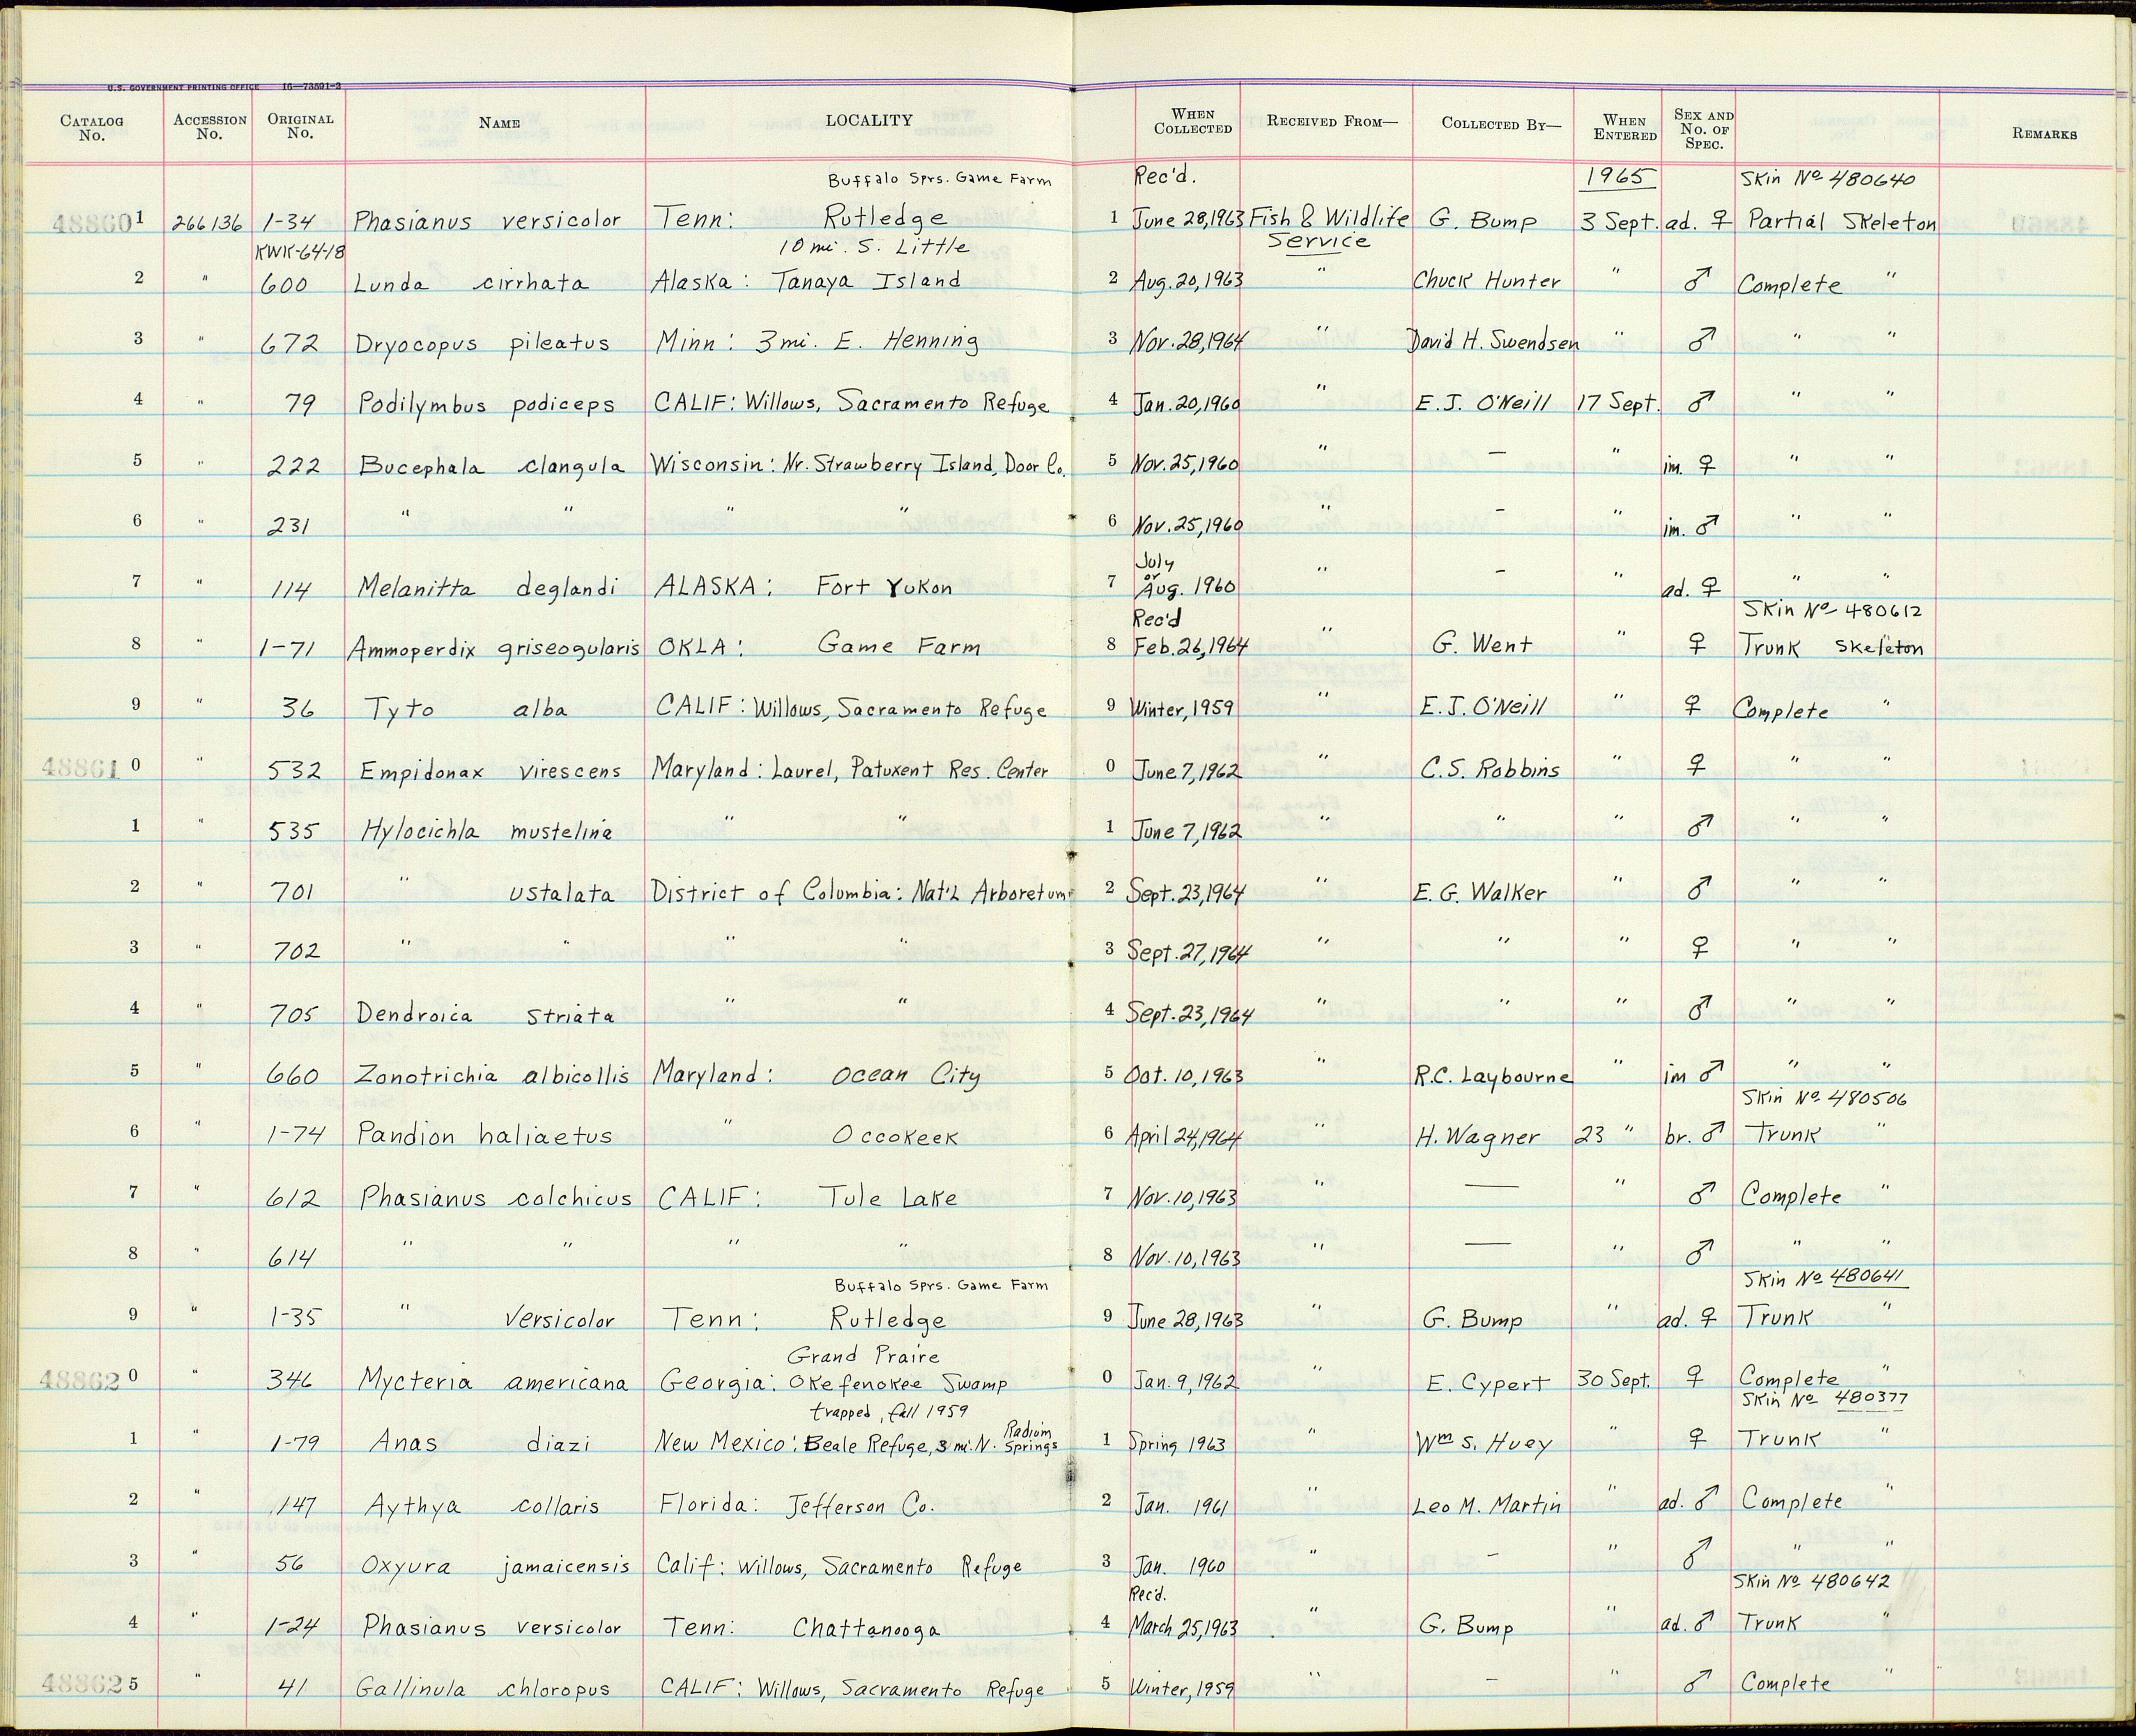 U.S. GOVERNMENT PRINTING OFFICE 16—73591-2
CATALOG No. ACCESSION No. ORIGINAL No. NAME LOCALITY WHEN COLLECTED RECEIVED FROM— COLLECTED BY— WHEN ENTERED SEX AND No. OF SPEC. REMARKS
Buffalo Sprs. Game Farm Rec'd. 1965 Skin No 480640
488601 266136 1-34 Phasianus versicolor Tenn: Rutledge 1 June 28,1963 Fish & Wildlife G. Bump 3 Sept. ad. ♀ Partial Skeleton
KWK-64-18 10 mi. S. Little Service
2 " 600 Lunda cirrhata Alaska: Tanaya Island 2 Aug. 20, 1963 " Chuck Hunter " ♂ Complete "
3 " 672 Dryocopus pileatus Minn: 3 mi. E. Henning 3 Nov. 28, 1964 " David H. Swendsen " ♂ " "
4 " 79 Podilymbus podiceps CALIF: Willows, Sacramento Refuge 4 Jan. 20, 1960 " E.J. O'Neill 17 Sept. ♂ " "
5 " 222 Bucephala clangula Wisconsin: Nr. Strawberry Island, Door Co. 5 Nov. 25, 1960 " — " im. ♀ " "
6 " 231 " " " " 6 Nov. 25, 1960 " – " im. ♂ " "
July
or
7 " 114 Melanitta deglandi ALASKA: Fort Yukon 7 Aug. 1960 " – " ad. ♀ " "
Rec'd Skin No 480612
8 " 1-71 Ammoperdix griseogularis OKLA: Game Farm 8 Feb. 26, 1964 " G. Went " ♀ Trunk Skeleton
9 " 36 Tyto alba CALIF: Willows, Sacramento Refuge 9 Winter, 1959 " E.J. O'Neill " ♀ Complete "
488610 " 532 Empidonax virescens Maryland: Laurel, Patuxent Res. Center 0 June 7, 1962 " C.S. Robbins " ♀ " "
1 " 535 Hylocichla mustelina " " 1 June 7, 1962 " " " ♂ " "
2 " 701 " ustalata District of Columbia: Nat'l Arboretum 2 Sept. 23, 1964 " E.G. Walker " ♂ " "
3 " 702 " " " " 3 Sept. 27, 1964 " " " ♀ " "
4 " 705 Dendroica striata " " 4 Sept. 23, 1964 " " " ♂ " "
5 " 660 Zonotrichia albicollis Maryland: Ocean City 5 Oct. 10, 1963 " R.C. Laybourne " im ♂ " "
Skin No 480506
6 " 1-74 Pandion haliaetus " Occokeek 6 April 24, 1964 " H. Wagner 23 " br. ♂ Trunk "
7 " 612 Phasianus colchicus CALIF: Tule Lake 7 Nov. 10, 1963 " — " ♂ Complete "
8 " 614 " " " " 8 Nov. 10, 1963 " — " ♂ " "
Buffalo Sprs. Game Farm Skin No 480641
9 " 1-35 " versicolor Tenn: Rutledge 9 June 28, 1963 " G. Bump " ad. ♀ Trunk "
Grand Praire
488620 " 346 Mycteria americana Georgia: Okefenokee Swamp 0 Jan. 9, 1962 " E. Cypert 30 Sept. ♀ Complete "
trapped, fall 1959 Skin No 480377
Radium
1 " 1-79 Anas diazi New Mexico: Beale Refuge, 3 mi. N. Springs 1 Spring 1963 " Wm S. Huey " ♀ Trunk "
2 " 147 Aythya collaris Florida: Jefferson Co. 2 Jan. 1961 " Leo M. Martin " ad. ♂ Complete "
3 " 56 Oxyura jamaicensis Calif: Willows, Sacramento Refuge 3 Jan. 1960 " – " ♂ " "
Rec'd. Skin No 480642
4 " 1-24 Phasianus versicolor Tenn: Chattanooga 4 March 25, 1963 " G. Bump " ad. ♂ Trunk "
488625 " 41 Gallinula chloropus CALIF: Willows, Sacramento Refuge 5 Winter, 1959 " – " ♂ Complete "